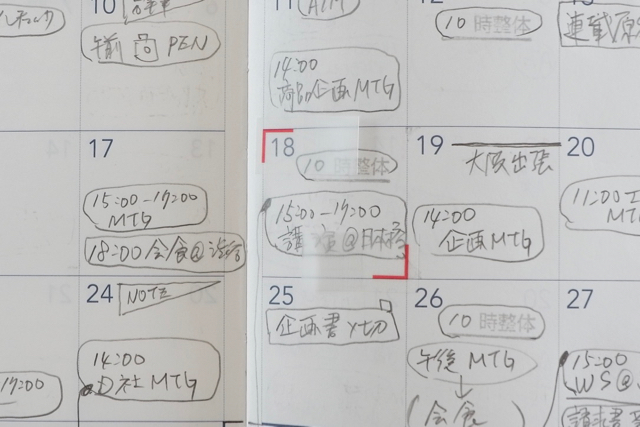 10
午前 PEN
11
14:00
企画MTG
12
10時整体
連載
17
15:00-17:00
MTG
18:00会食@渋谷
18
10時整体
15:00-17:00
講演@日本橋
19
大阪出張
14:00
企画MTG
20
11:00
24
NOTE
14:00
MTG
17:00
25
企画書〆切
26
10時整体
午後 MTG
(会食)
27
15:00
WS@
請求書